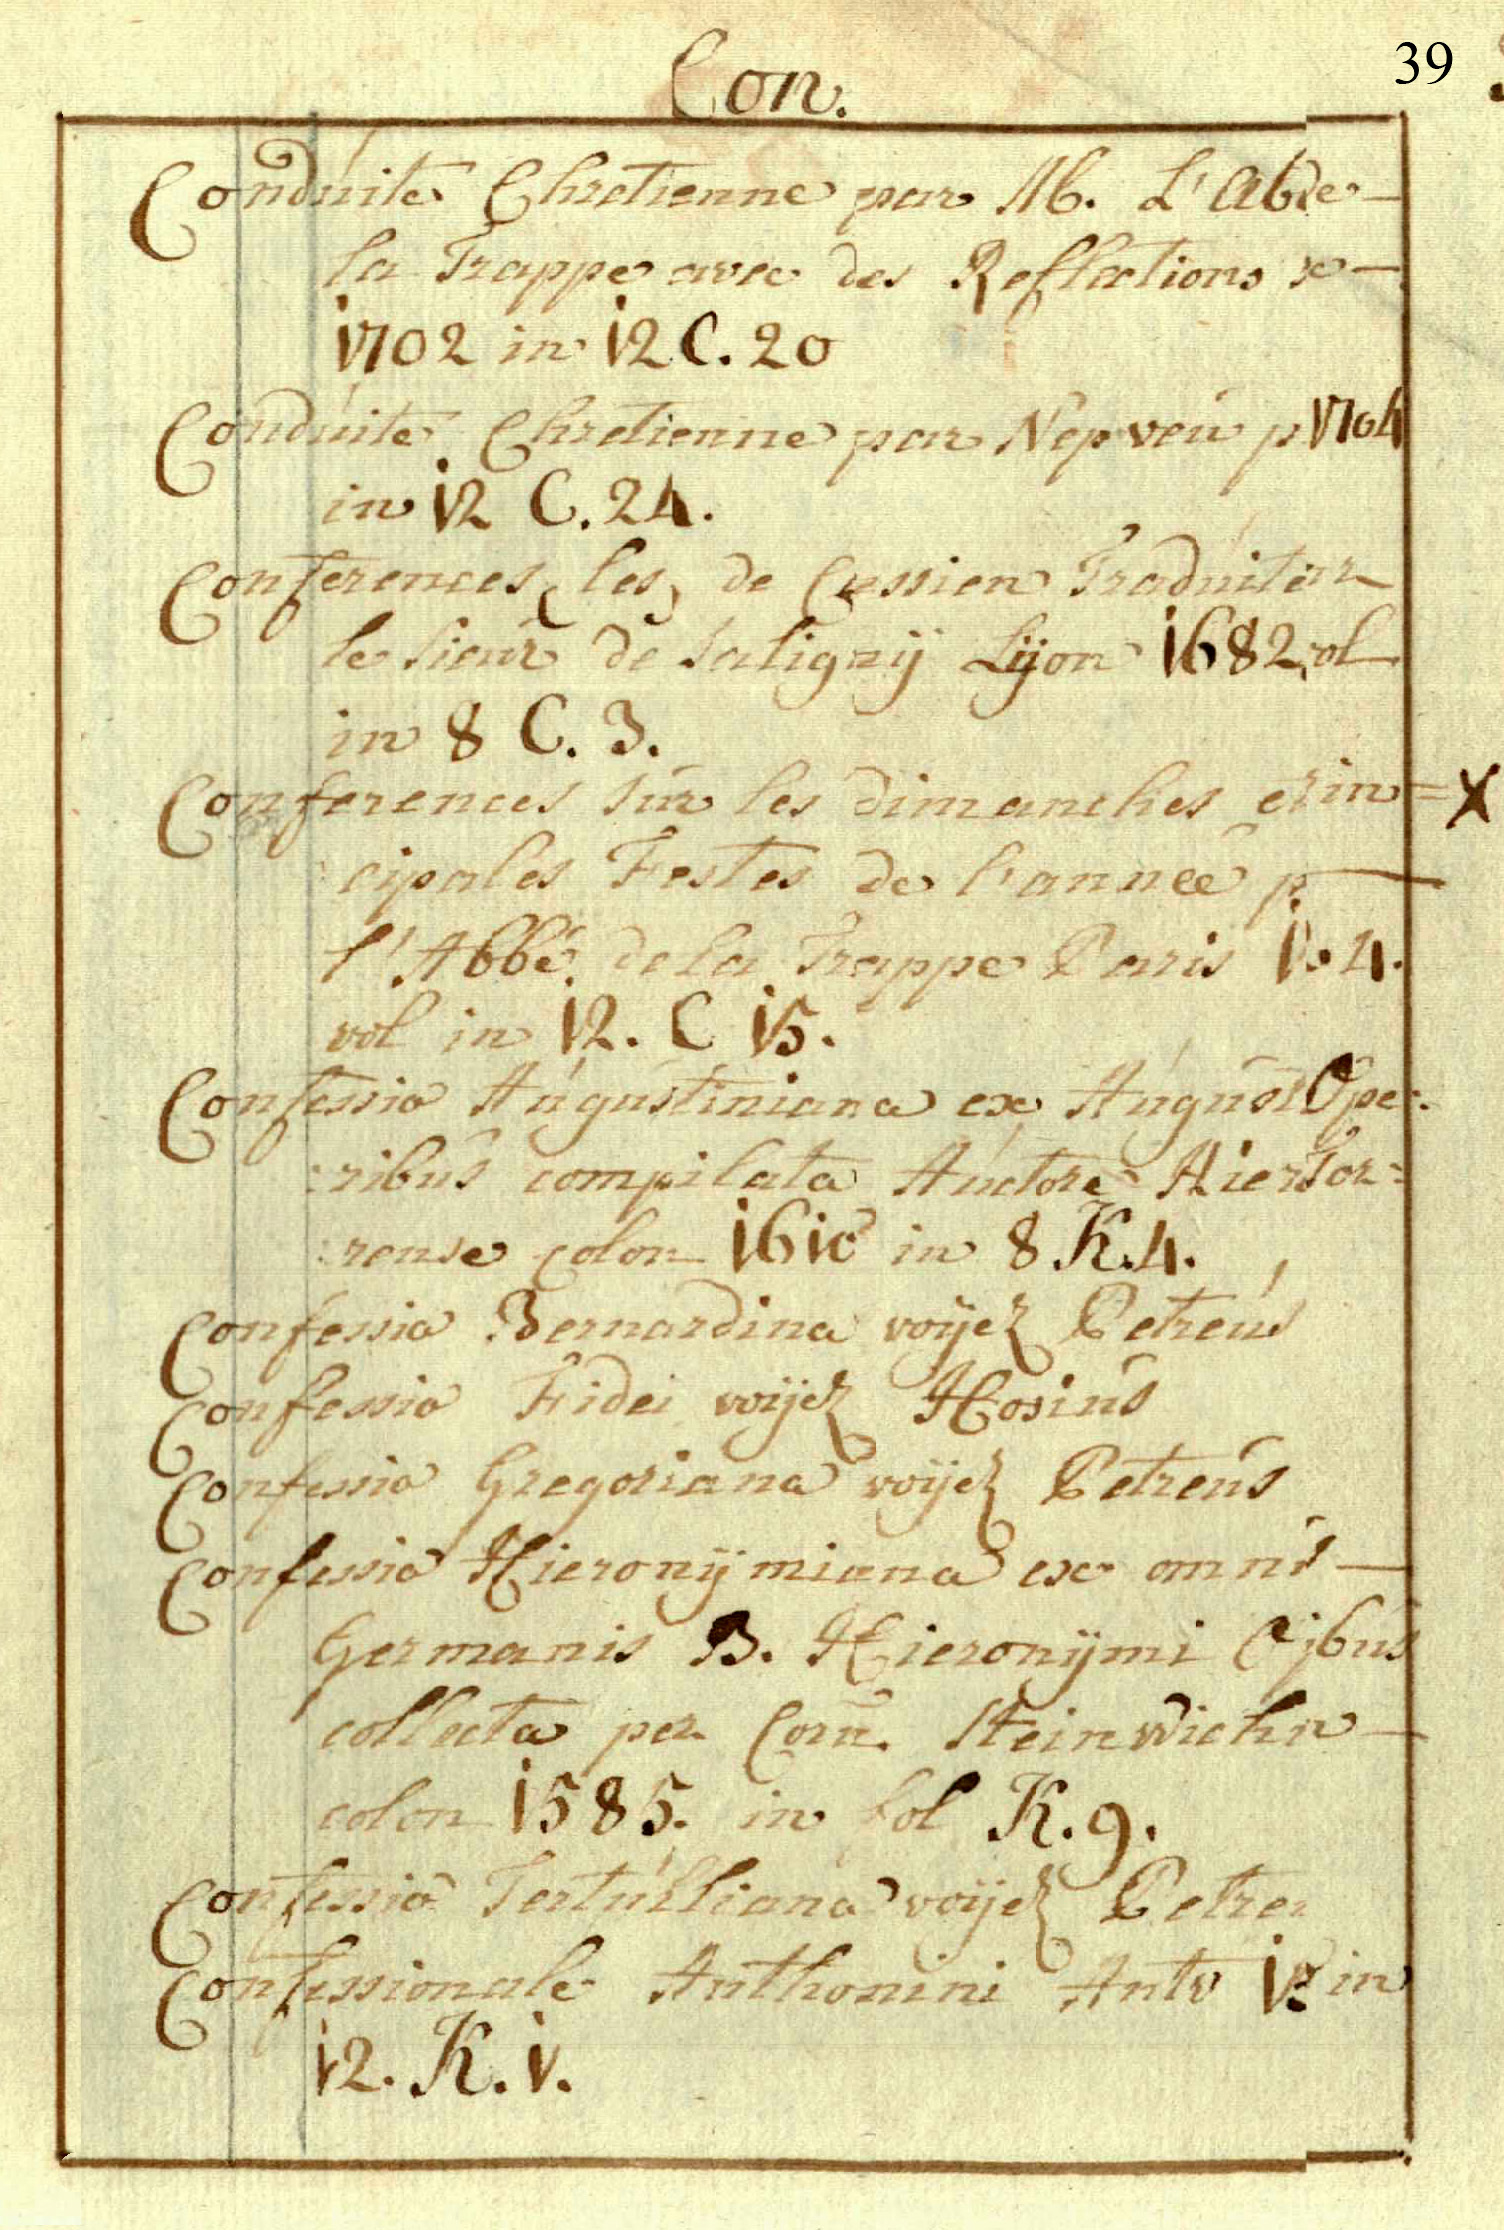 39
Con.
Conduite Chretienne par M. L'Abde
la Trappe avec des Reflections
1702 in 12 C. 20
Conduite Chretienne par Nepveu p 1704
in 12 C. 24.
Conferences (les) de Cassien
le sieur de Saligny Lyon 1682 vol
in 8 C. 3.
Conferences sur les dimanches et Prin= X
cipales Festes de l'année p
l'Abbé de la Trappe Paris 4.
vol in 12. C 15.
Confessio Augustiniana ex August Ope=
=ribus compilata Auctore Hier Tor=
=rense colon in 8 K. 4.
Confessio Bernardina voÿez Petreus
Confessio Fidei voÿez Hosius
Confessio Gregoriana voÿez Petreus
Confessio Hieronÿmiana ex omnis
Germanis B. Hieronÿmi
collecta per Corn. Steinwichn
colon 1585. in fol K. 9.
Confessio Tertulliana voÿez Petre
Confessionale Anthonini Antv in
12. K. 1.